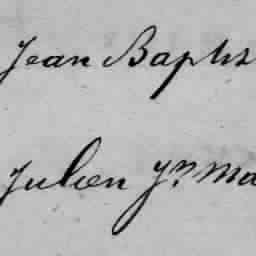 Jean Baptis
Julien Jn Ma